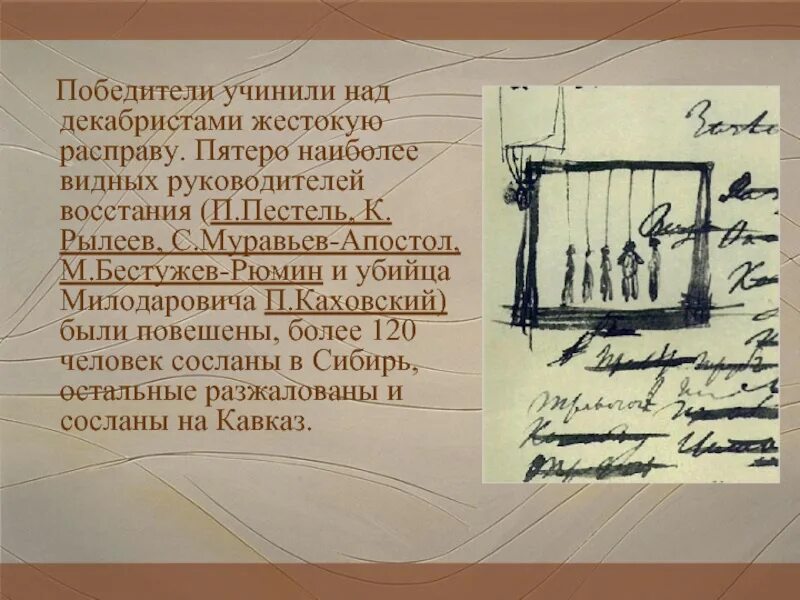 Победители учинили над
декабристами жестокую
расправу. Пятеро наиболее
видных руководителей
восстания (П.Пестель, К.
Рылеев, С.Муравьев-Апостол,
М.Бестужев-Рюмин и убийца
Милодаровича П.Каховский)
были повешены, более 120
человек сосланы в Сибирь,
остальные разжалованы и
сосланы на Кавказ.